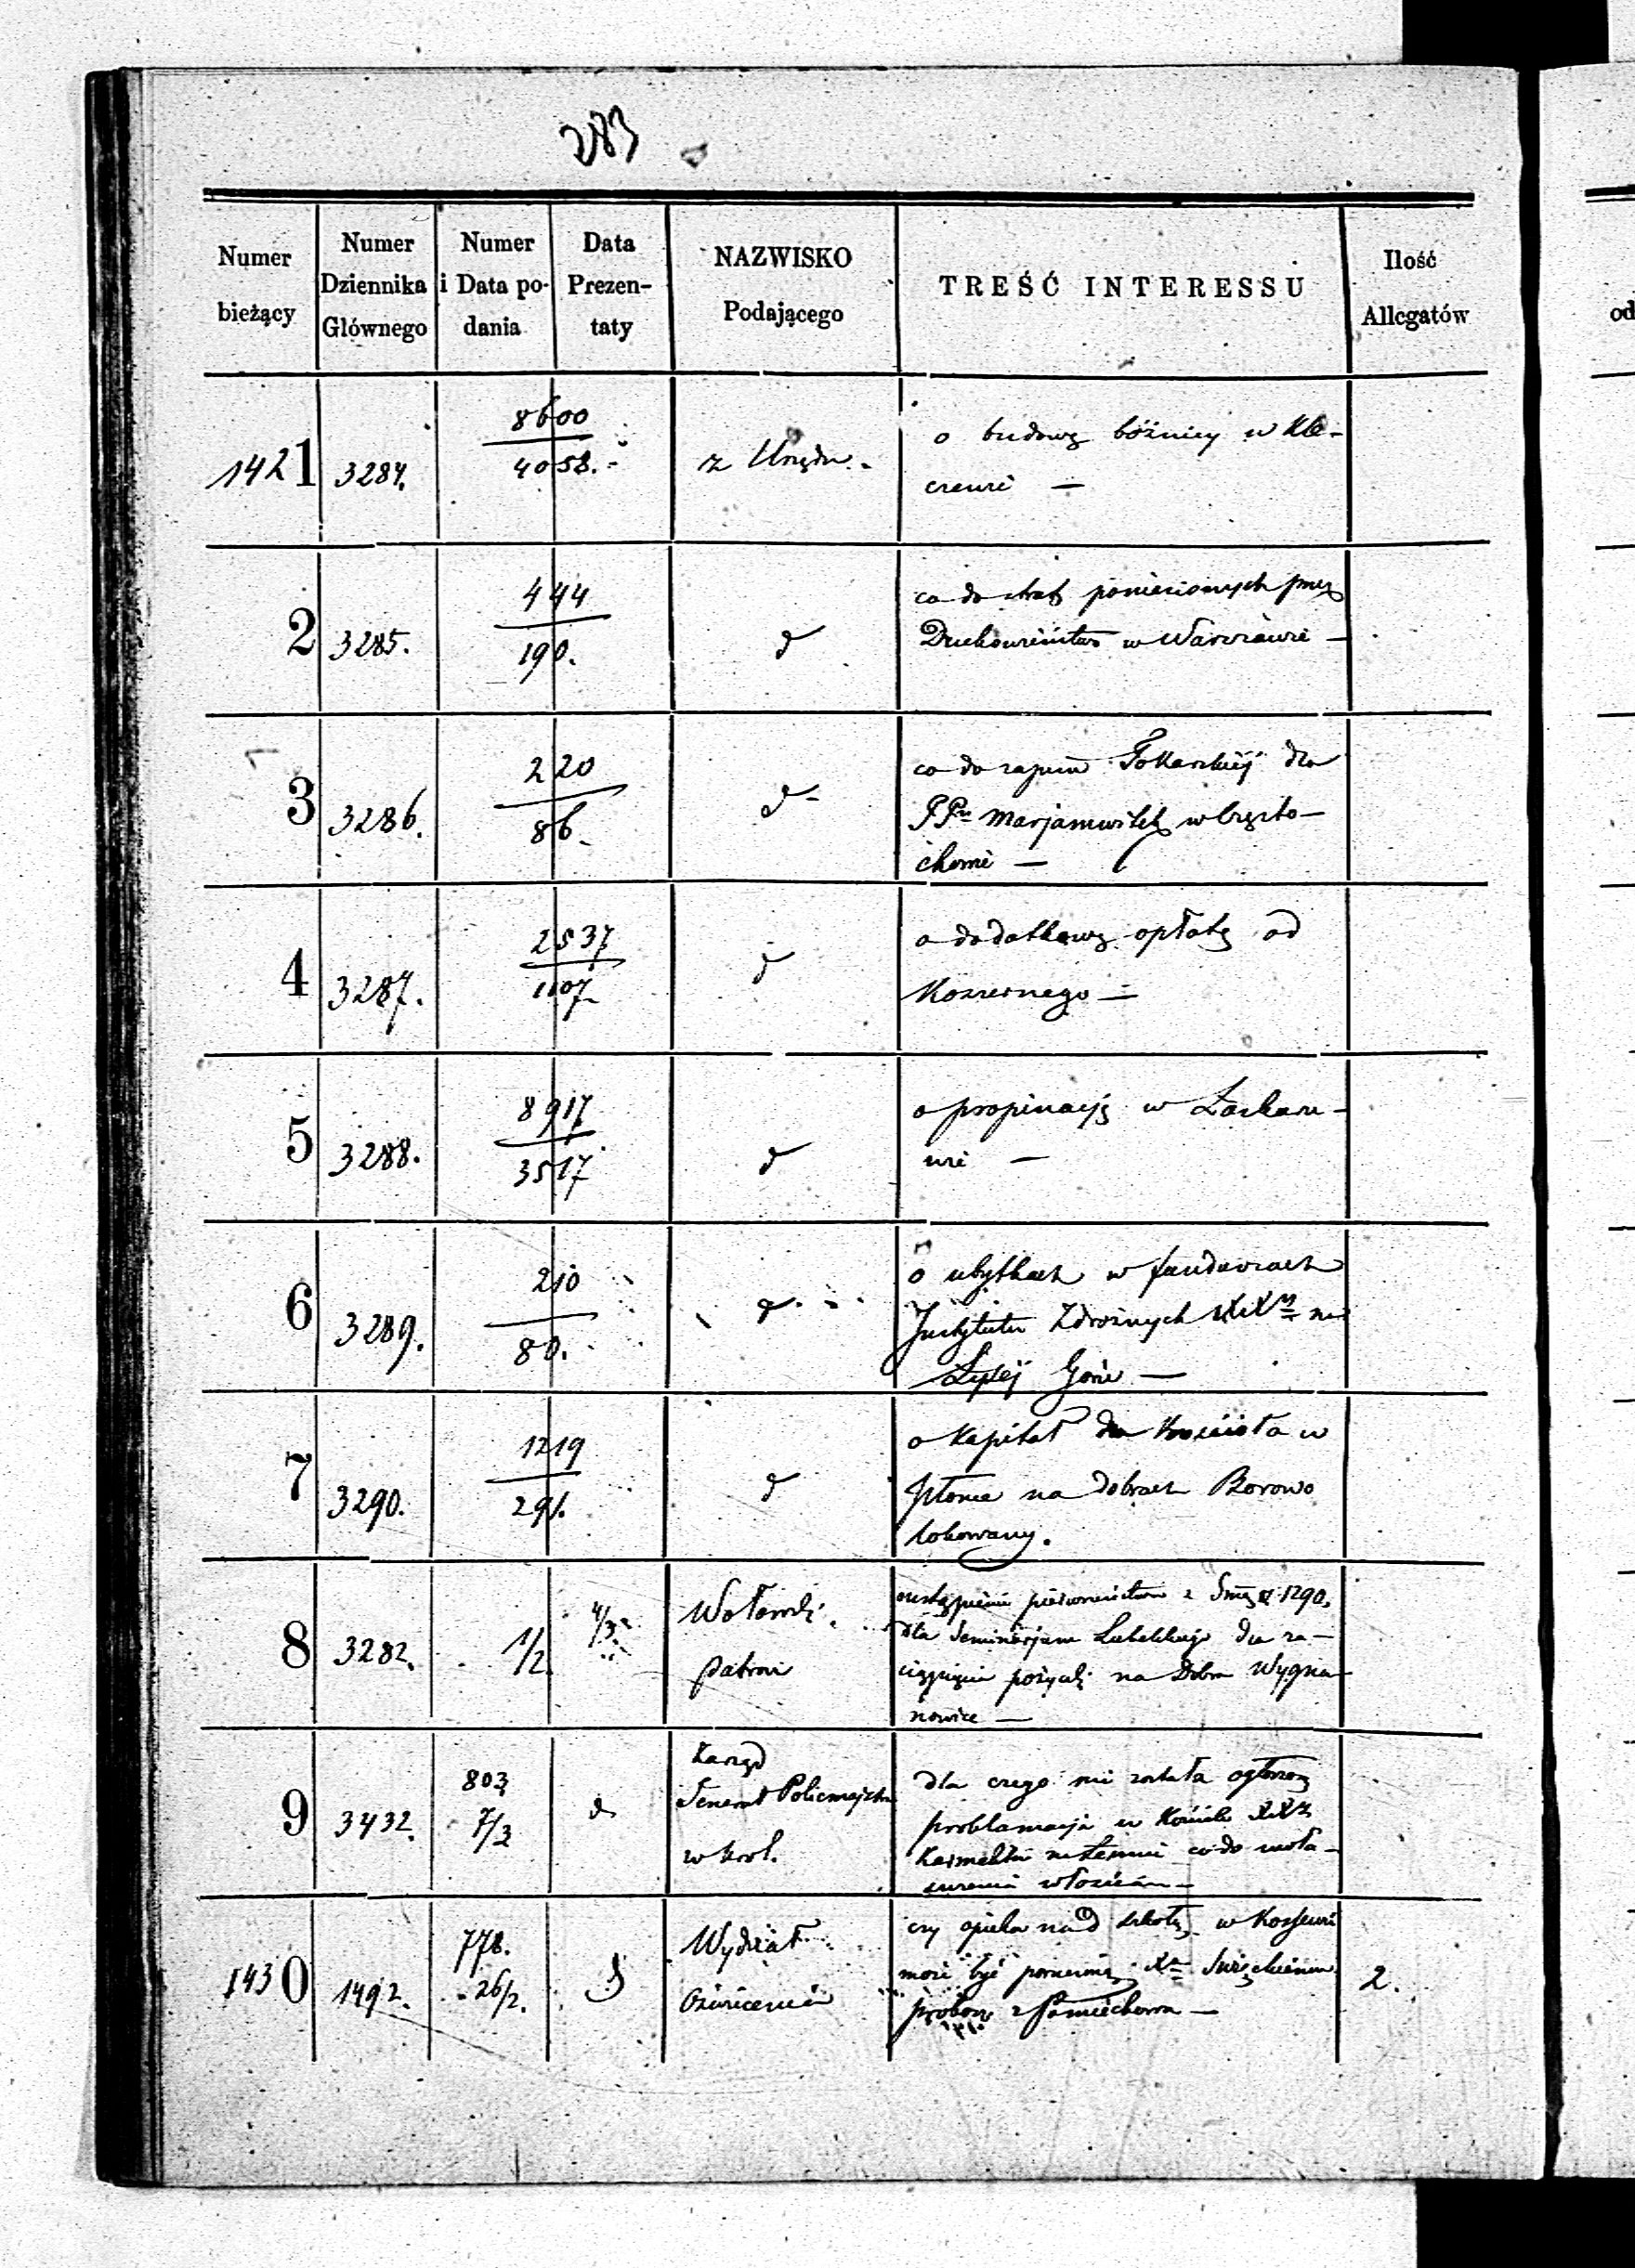 283
Numer bieżący
Numer Dziennika Głównego
Numer i Data podania
Data Prezentaty
NAZWISKO Podającego
TREŚĆ INTERESSU
Ilość Allegatów
od
1421 3284. 8600 / 4058. z Urzędu.
o budowę bóżnicy w Kle-
czewie —
2 3285. 444 / 190. d
co do strat poniesionych przez
Duchowieństwo w Warszawie —
3 3286. 220 / 86. d
co do zapisu Tokarskiej dla
PP. Marjawitek w Często-
chowie —
4 3287. 2537 / 1107. d
o dodatkową opłatę od
Koszernego —
5 3288. 8917 / 3517. d
o propinacyę w
wie —
6 3289. 210 / 80. d
o ubytkach w funduszach
Instytutu Zdrożnych XX. na
Łysej Górze —
7 3290. 1219 / 291. d
o Kapitał dla Kościoła w
na dobrach Borowo
lokowany.
8 3282. 1/2 4/3 Wołowski Patron
pierwszeństwa z Smą 1290.
dla Seminarjum Lubelskiego do za-
ciągnięcia pożyczki na Dobra Wygna-
nowice —
9 3432. 803 7/3 d
Zarząd
Generał Policmajstra
w Król.
dla czego nie została ogłoszona
proklamacja w Kościele XX.
Karmelitów co do uwła-
szczenia włościan —
1430 1492. 778. 26/2. Wydział Oświecenia
czy opieka nad szkołą w
może być XX.
z Pomiechowa —
2.